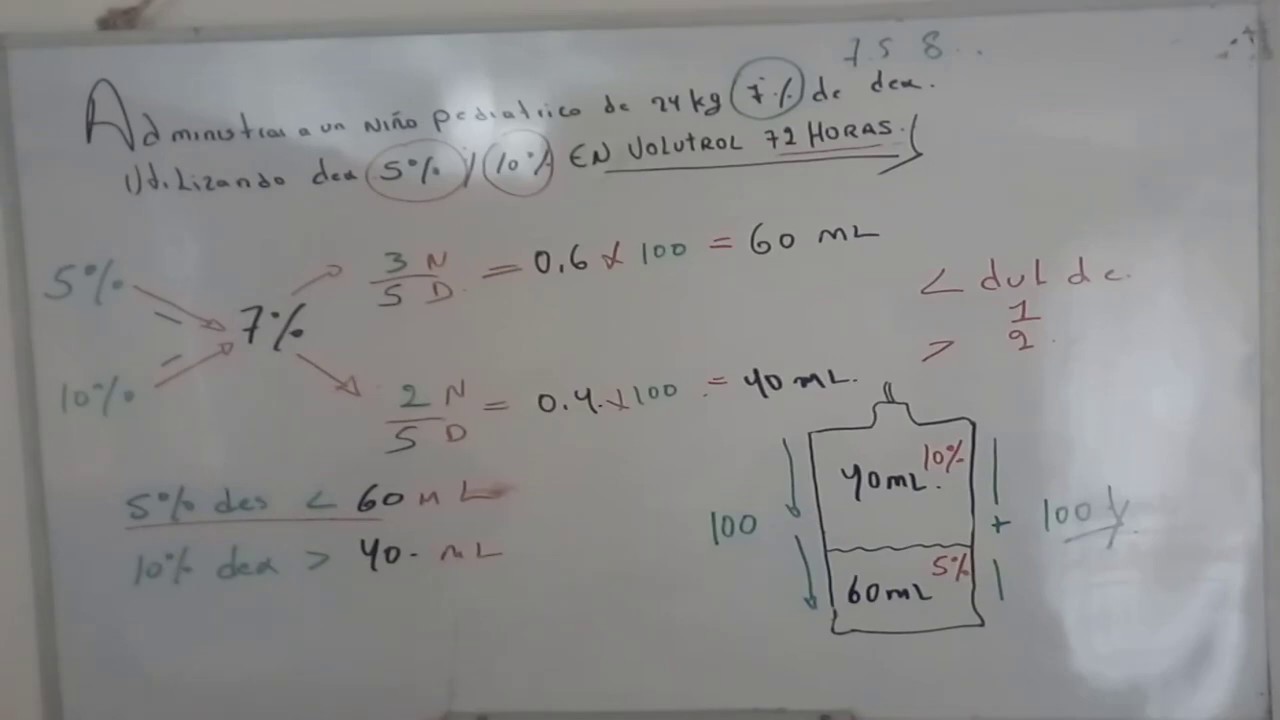 7.5 8..
Administrar a un Niño pediatrico de 24kg 7% de dex.
Utilizando dex 5% y 10% EN VOLUTROL 72 HORAS.
5%
10%
7%
3 N
5 D = 0.6 x 100 = 60 mL
2 N
5 D = 0.4 x 100 = 40 mL.
5% des < 60 mL
10% dex > 40. mL
< dul de.
> 1
2
10%
40mL.
5%
60mL
100
+ 100